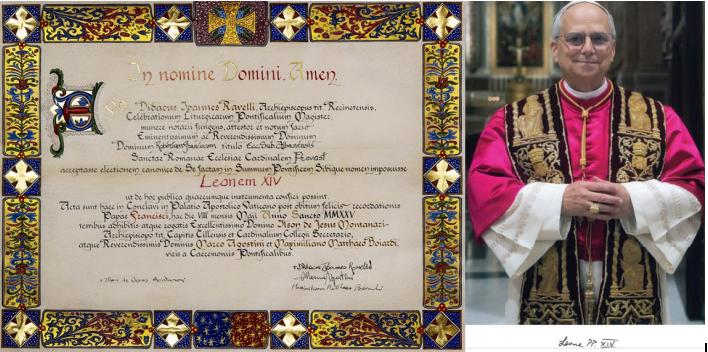 In nomine Domini. Amen.
Ego Didacus Ioannes Ravelli, Archiepiscopus tit. Recinetensis,
Celebrationum Liturgicarum Pontificalium Magister,
munere notarii fungens, attestor et notum facio
Eminentissimum ac Reverendissimum Dominum
Dominum titulo
Sanctae Romanae Ecclesiae Cardinalem Prevost
acceptasse electionem canonice de Se factam in Summum Pontificem Sibique nomen imposuisse
Leonem XIV
ut de hoc publica quaecumque instrumenta confici possint.
Acta sunt haec in Conclavi in Palatio Apostolico Vaticano post obitum felicis recordationis
Papae Francisci, hac die VIII mensis Maii Anno Sancto MMXXV
testibus adhibitis atque rogatis Excellentissimo Domino Ilson de Jesus Montanari
Archiepiscopo tit. Capitis Cillensis et Cardinalium Collegii Secretario,
atque Reverendissimis Dominis Marco Agostini et Maximiliano Matthaeo Boiardi,
viris a Caeremoniis Pontificalibus.
Leone PP. XIV